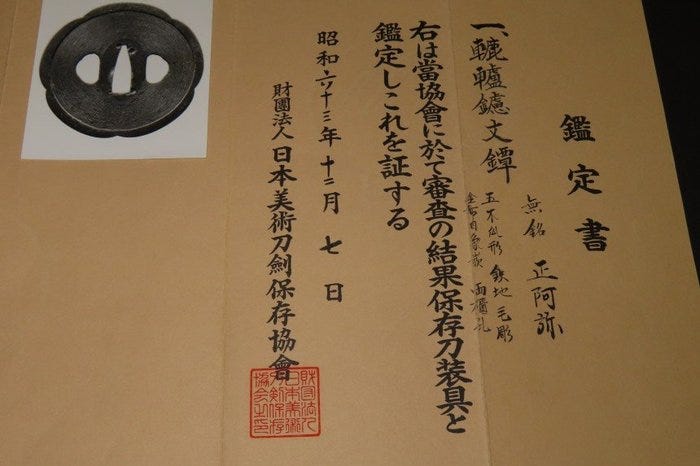 鑑定書
一、轆轤鑢文鐔
無銘 正阿弥
鉄地 毛彫
両櫃孔
右は當協會に於て審査の結果保存刀装具と
鑑定しこれを証する
昭和六十三年十二月七日
財團法人 日本美術刀劍保存協會
財団法人
日本美術
刀剣保存
協会之印